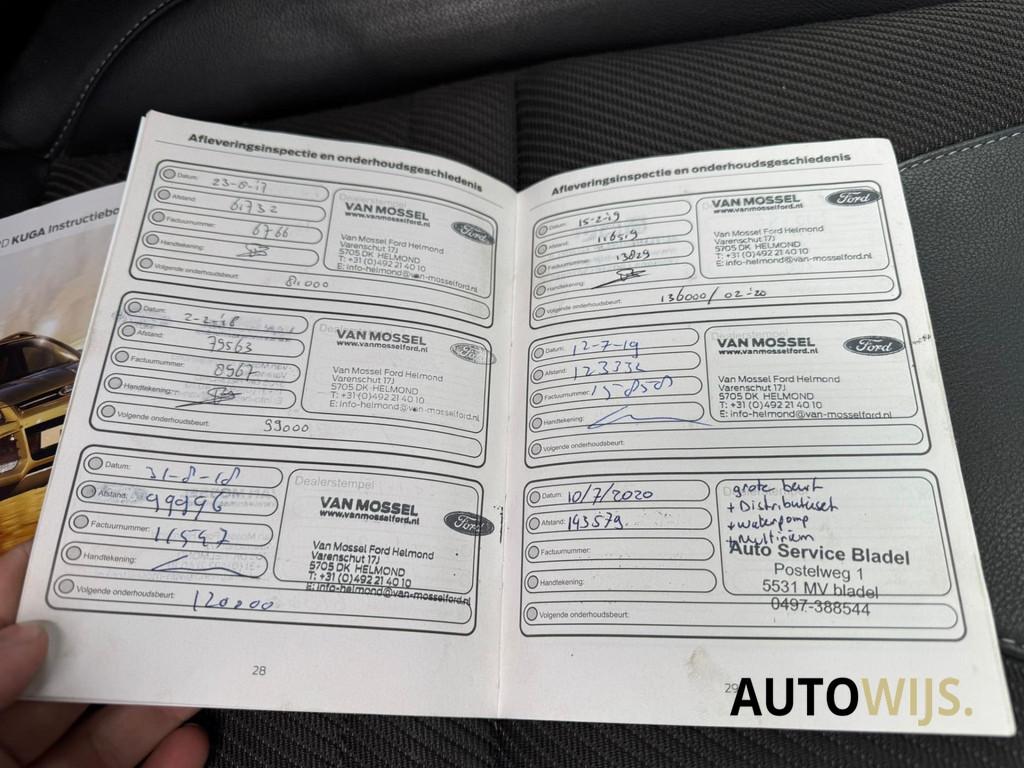 D KUGA Instructiebo
Afleveringsinspectie en onderhoudsgeschiedenis
Datum: 23-8-17
Afstand: 61732
Factuurnummer: 6766
Handtekening:
Volgende onderhoudsbeurt: 81000
VAN MOSSEL
www.vanmosselford.nl
Ford
Van Mossel Ford Helmond
Varenschut 17J
5705 DK HELMOND
T: +31 (0)492 21 40 10
E: info-helmond@van-mosselford.nl
Datum: 2-2-'18
Afstand: 79563
Factuurnummer: 8967
Handtekening:
Volgende onderhoudsbeurt: 99000
Dealerstempel
VAN MOSSEL
www.vanmosselford.nl
Ford
Van Mossel Ford Helmond
Varenschut 17J
5705 DK HELMOND
T: +31 (0)492 21 40 10
E: info-helmond@van-mosselford.nl
Datum: 31-8-18
Afstand: 99996
Factuurnummer: 11547
Handtekening:
Volgende onderhoudsbeurt: 120000
Dealerstempel
VAN MOSSEL
www.vanmosselford.nl
Ford
Van Mossel Ford Helmond
Varenschut 17J
5705 DK HELMOND
T: +31 (0)492 21 40 10
E: info-helmond@van-mosselford.nl
28
Afleveringsinspectie en onderhoudsgeschiedenis
Datum: 15-2-19
Afstand:
Factuurnummer: 13829
Handtekening:
Volgende onderhoudsbeurt: 136000/02-20
VAN MOSSEL
www.vanmosselford.nl
Ford
Van Mossel Ford Helmond
Varenschut 17J
5705 DK HELMOND
T: +31 (0)492 21 40 10
E: info-helmond@van-mosselford.nl
Datum: 12-7-19
Afstand: 123332
Factuurnummer: 15858
Handtekening:
Volgende onderhoudsbeurt:
Dealerstempel
VAN MOSSEL
www.vanmosselford.nl
Ford
Van Mossel Ford Helmond
Varenschut 17J
5705 DK HELMOND
T: +31 (0)492 21 40 10
E: info-helmond@van-mosselford.nl
Datum: 10/7/2020
Afstand: 143579
Factuurnummer:
Handtekening:
Volgende onderhoudsbeurt:
grote beurt
+ Distributieset
+ waterpomp
+ Multiriem
Auto Service Bladel
Postelweg 1
5531 MV bladel
0497-388544
29
AUTOWIJS.